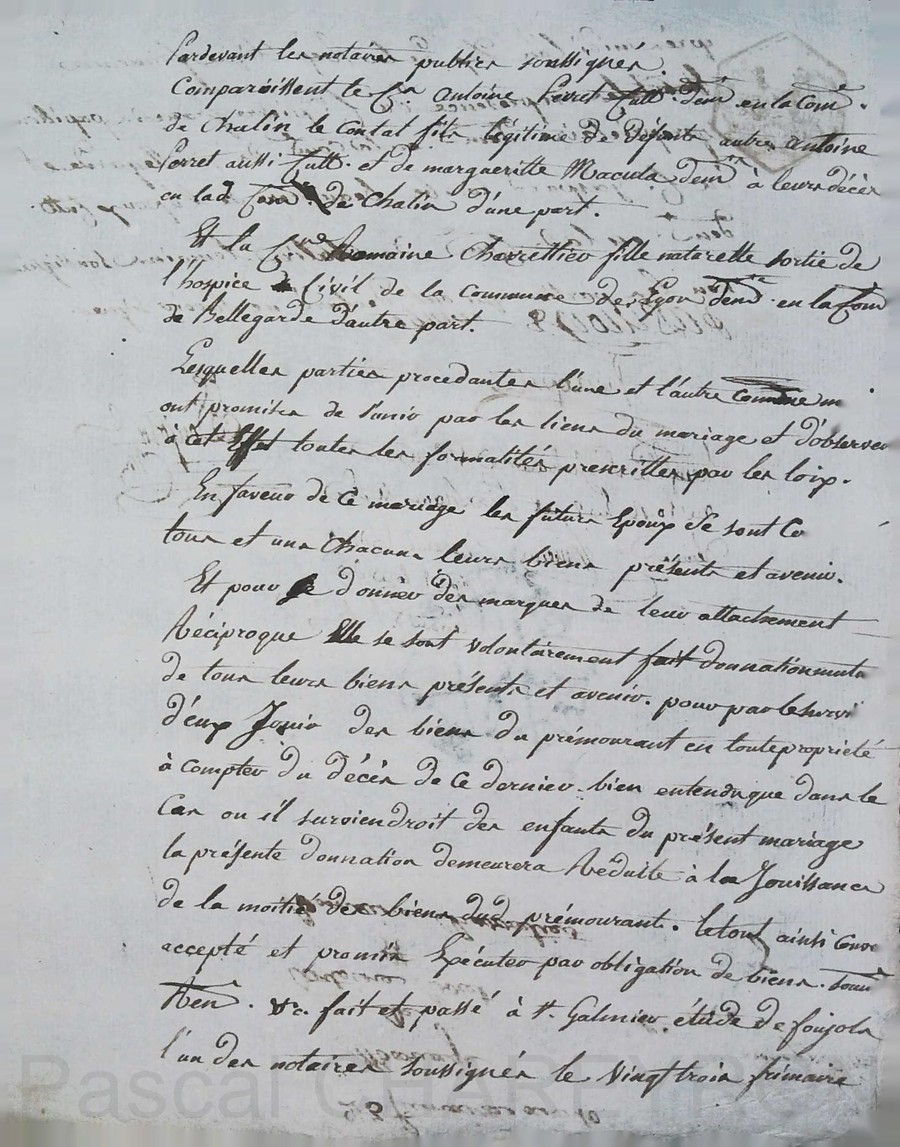 Pardevant les notaires publics soussignés.
Comparoissent le Cn Antoine Perret Cult. demt en la Com.
de Chalin le Contal fils légitime de défunt autre antoine
Perret aussi Cult. et de margueritte Macula demt à leurs décès
en lad. Com. de Chalin d'une part.
Et la Cne Romaine Charrettier fille naturelle sortie de
l'hospice Civil de la Commune de Lyon demt en la Com
de Bellegarde d'autre part.
Lesquelles parties procedantes l'une et l'autre Comme
ont promises de s'unir par les liens du mariage et d'observer
à cet Effet toutes les formalités prescrittes par les loix.
En faveur de Ce mariage les futurs Epoux Se sont Co
tous et uns Chacuns leurs biens présents et avenir.
Et pour se donner des marques de leur attachement
Réciproque Elle se sont volontairement fait donnation mut
de tous leurs biens présents et avenir. pour par le survi
d'eux Jouir des biens du prémourant en toute propriété
à compter du décès de Ce dernier. bien entendu que dans le
Cas ou il surviendroit des enfants du présent mariage
la présente donnation demeurera Réduitte à la Jouissance
de la moitié des biens dud. prémourant. le tout ainsi Conv
accepté et promis Exécuter par obligation de biens. Soum
Ren. &c. fait et passé à St. Galmier étude de foujols
l'un des notaires soussignés le vingt trois frimaire
Pascal